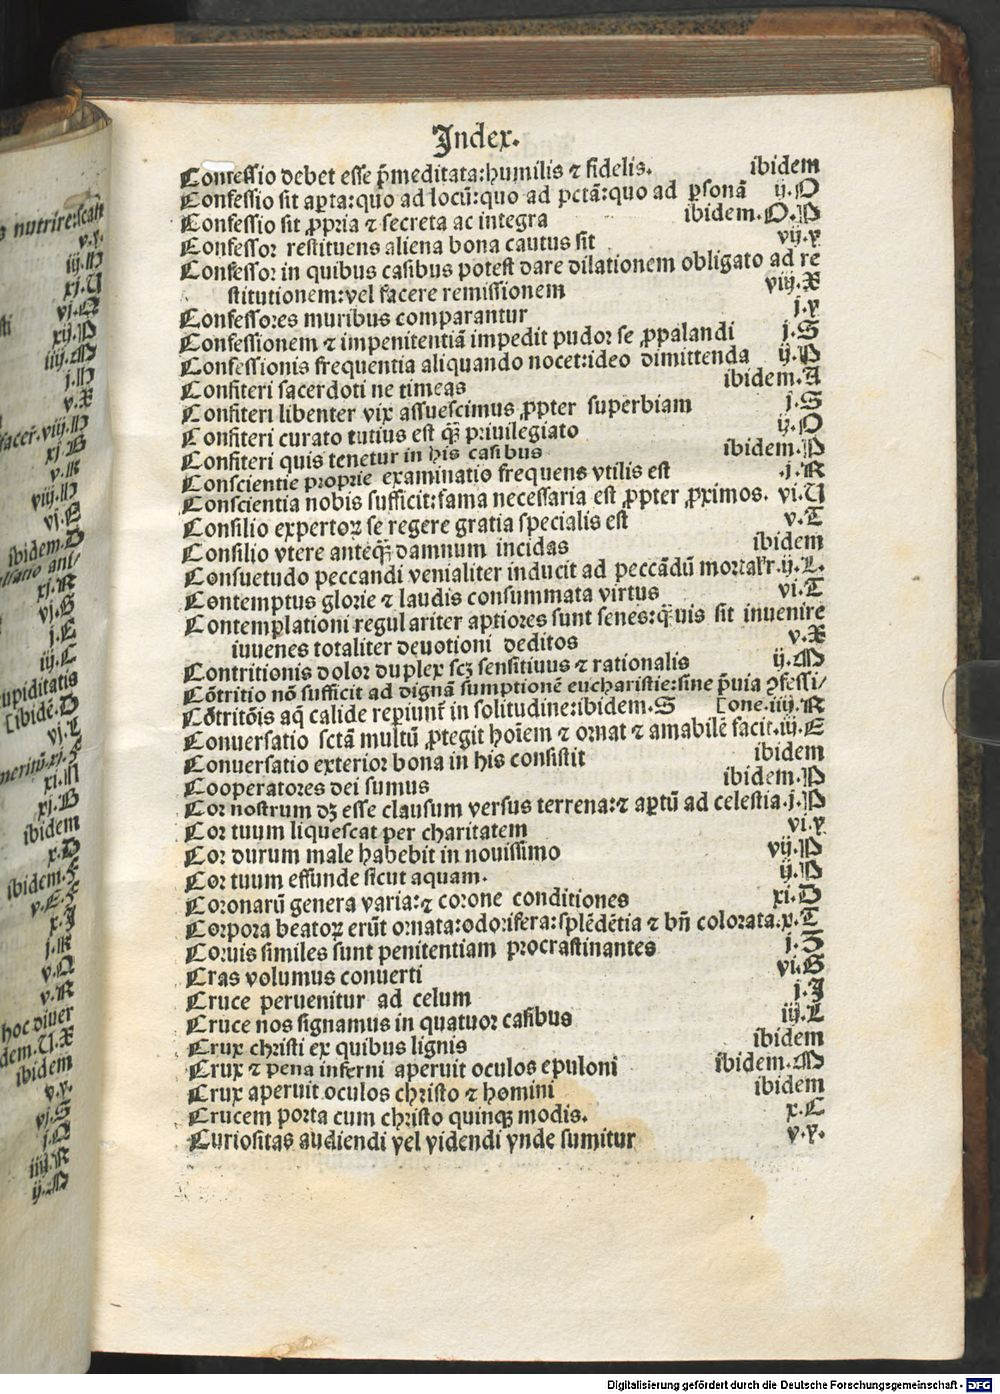 Index.
Confessio debet esse p̄meditata:humilis ⁊ fidelis. ibidem
Confessio sit aꝑta:quo ad locū:quo ad pctā:quo ad ꝑsonā ij.O
Confessio sit ꝓpria ⁊ secreta ac integra ibidem.O.P
Confessor restituens aliena bona cautus sit vij.y
Confessor in quibus casibus potest dare dilationem obligato ad re
stitutionem:vel facere remissionem viij.X
Confessores muribus comparantur j.y
Confessionem ⁊ impenitentiā impedit pudor se ꝓpalandi j.S
Confessionis frequentia aliquando nocet:ideo dimittenda ij.P
Confiteri sacerdoti ne timeas ibidem.A
Confiteri libenter vix assuescimus ꝓpter superbiam j.S
Confiteri curato tutius est qȝ̄ priuilegiato ij.O
Confiteri quis tenetur in his casibus ibidem.P
Conscientie proprie examinatio frequens vtilis est .j.R
Conscientia nobis sufficit:fama necessaria est ꝓpter ꝓximos. vi.U
Consilio expertoꝝ se regere gratia specialis est v.T
Consilio vtere anteqȝ̄ damnum incidas ibidem
Consuetudo peccandi venialiter inducit ad peccādū mortalr̄.ij.L.
Contemptus glorie ⁊ laudis consummata virtus vi.T
Contemplationi regulariter aptiores sunt senes:qȝ̄uis sit inuenire
iuuenes totaliter deuotioni deditos v.X
Contritionis dolor duplex scȝ sensitiuus ⁊ rationalis ij.M
Cōtritio nō sufficit ad dignā sumptionē eucharistie:sine p̄uia ꝯfessi/
Cōtritōis aq̄ calide reꝑiunt̄ in solitudine:ibidem.S [one.iiij.R
Conuersatio sctā multū ꝓtegit hoīem ⁊ ornat ⁊ amabilē facit.iij.E
Conuersatio exterior bona in his consistit ibidem
Cooperatores dei sumus ibidem.P
Cor nostrum dȝ esse clausum versus terrena:⁊ aꝑtū ad celestia.j.P
Cor tuum liquescat per charitatem vi.y
Cor durum male habebit in nouissimo vij.P
Cor tuum effunde sicut aquam. ij.P
Coronarū genera varia:⁊ corone conditiones xi.D
Corpora beatoꝝ erūt ornata:odorifera:splēdētia ⁊ bn̄ colorata.x.T
Coruis similes sunt penitentiam procrastinantes j.Z
Cras volumus conuerti vi.G
Cruce peruenitur ad celum j.I
Cruce nos signamus in quatuor casibus iij.L
Crux christi ex quibus lignis ibidem
Crux ⁊ pena inferni aperuit oculos epuloni ibidem.M
Crux aperuit oculos christo ⁊ homini ibidem
Crucem porta cum christo quinqȝ modis. x.C
Curiositas audiendi vel videndi vnde sumitur v.y.
nutrire:
v.y.
iij.H
xj.U
vj.Q
xij.P
iiij.M
j.H
v.X
facer̄.viij.H
xj.B
v.R
viij.H
vj.E
ibidem.D
ani/
xj.R
vj.G
j.E
iij.C
cupiditatis
[ibidē.D
vj.L
meritū.xj.F
xi.N
xj.B
ibidem
x.D
ibidem.F
v.E.F
x.I
j.K
v.Q
v.R
hoc diuer
dem.U.X
ibidem
v.y.
vj.S
j.Q
iiij.R
ij.M
Digitalisierung gefördert durch die Deutsche Forschungsgemeinschaft - DFG